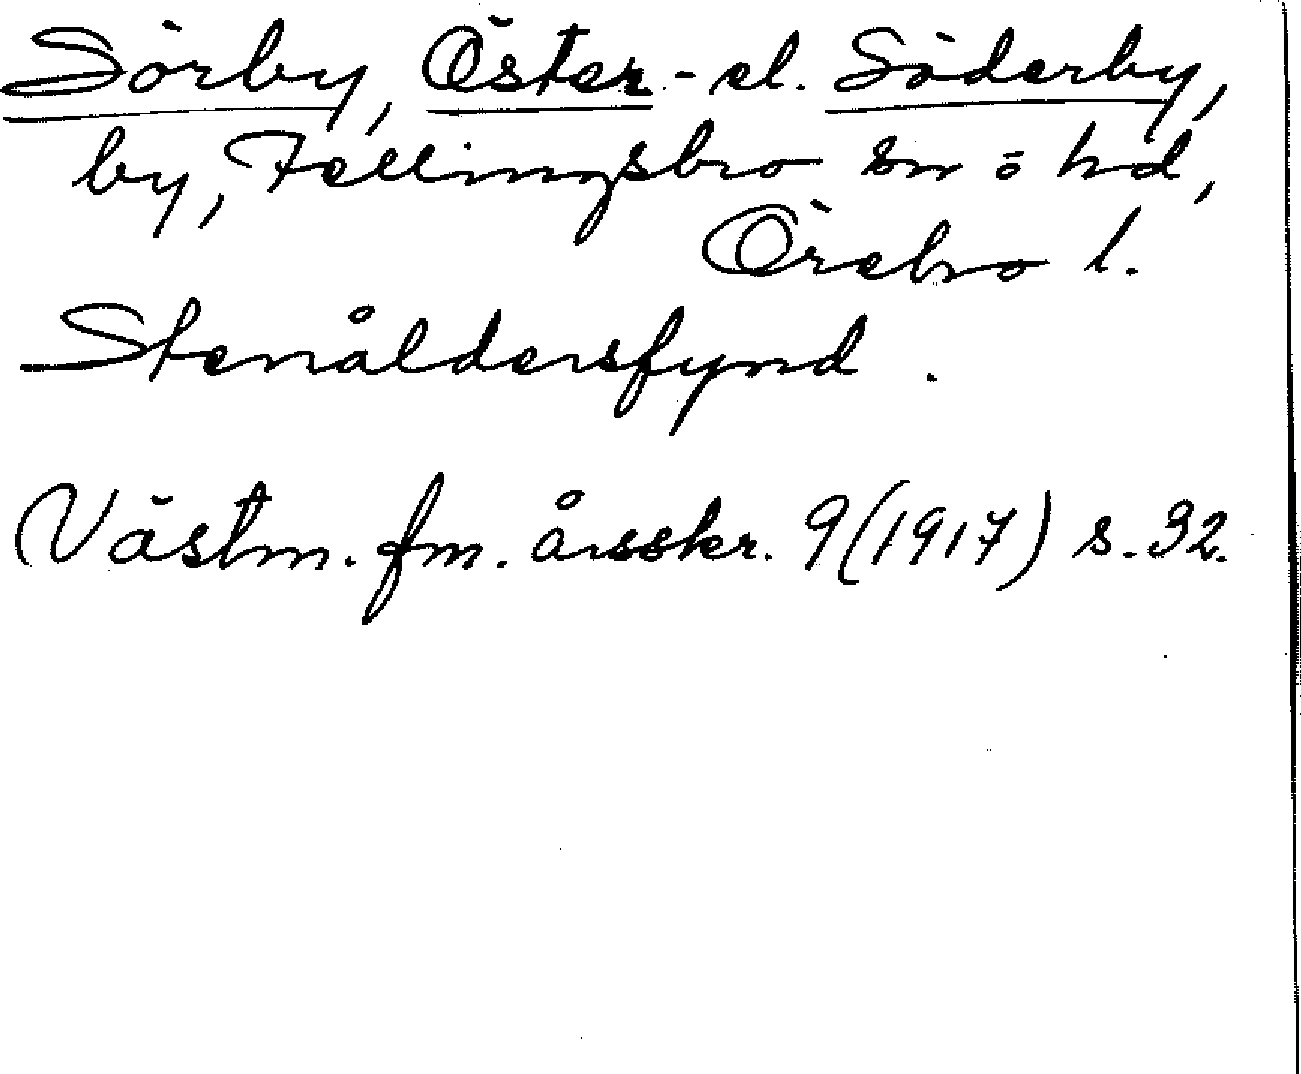 Sörby, Öster- el. Söderby,
by, Fellingsbro sn o hd,
Örebro l.
Stenåldersfynd.
Västm. fm. årsskr. 9 (1917) s. 32.